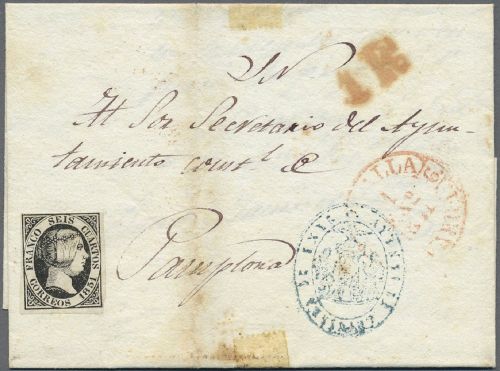 S. N.
1 R.
Al Sor Secretario del Ayun-
tamiento constl &
Pamplona
FRANCO SEIS CUARTOS
CORREOS 1851